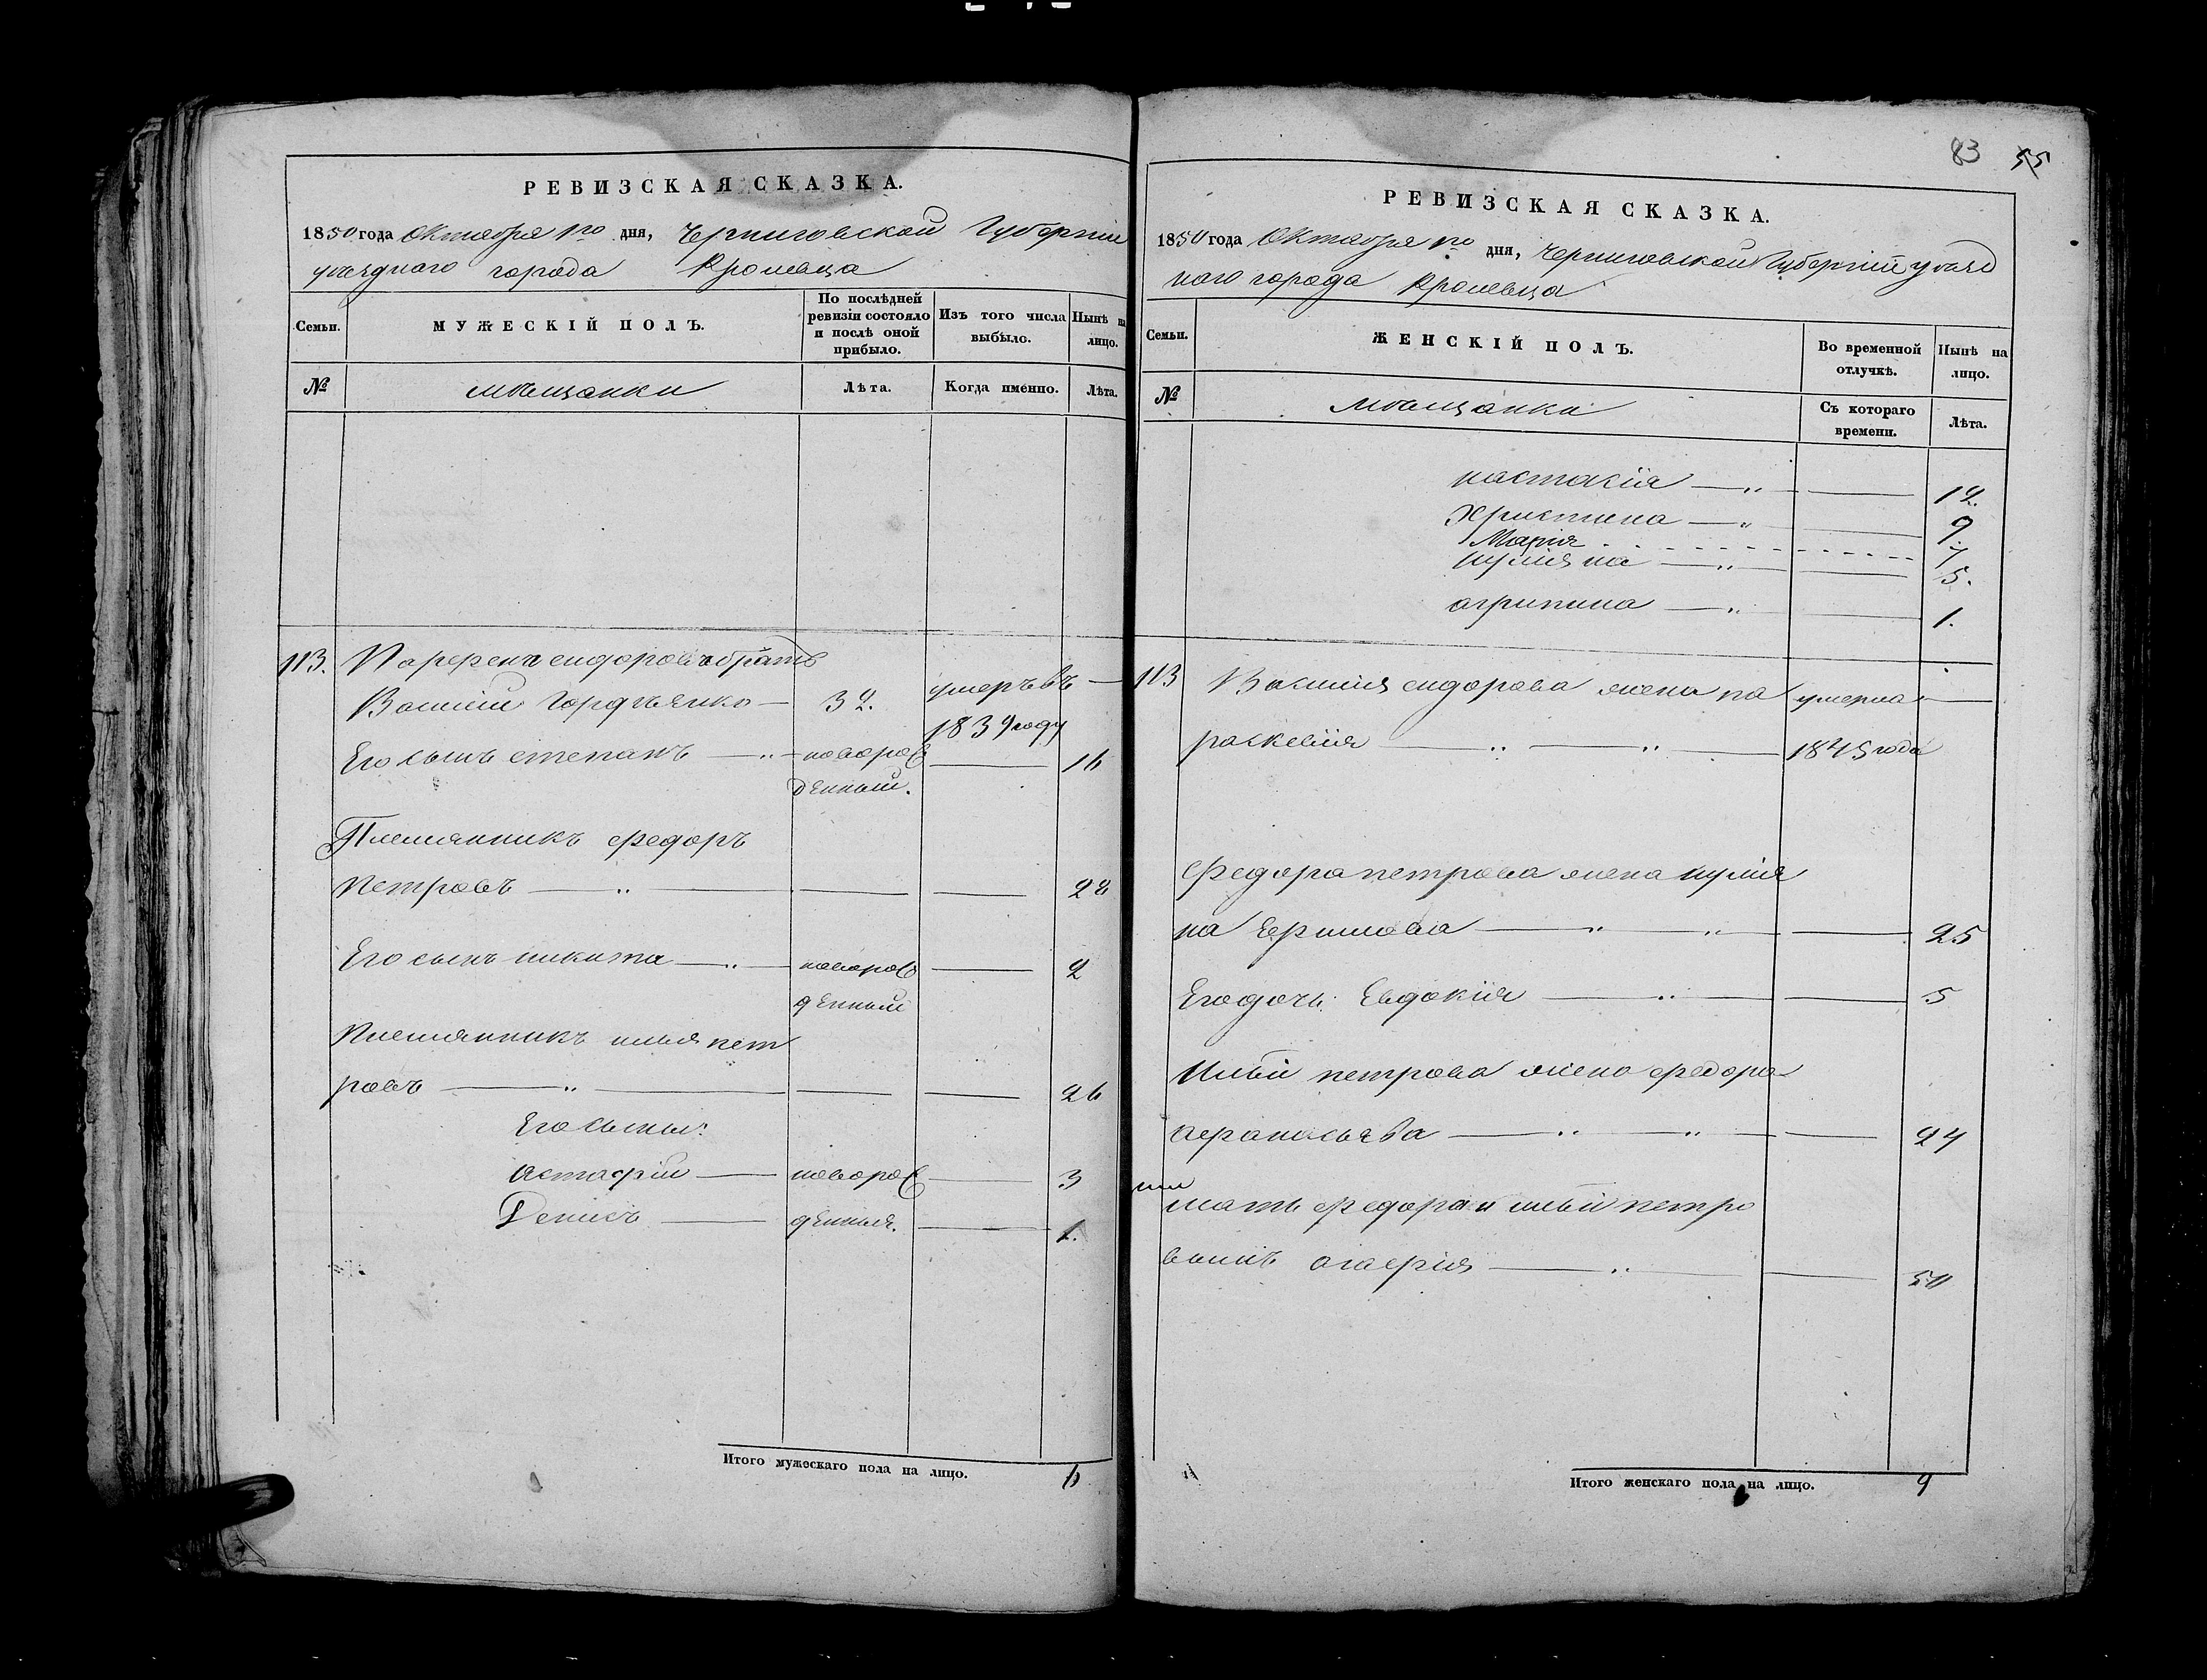 РЕВИЗСКАЯ СКАЗКА.
1850 года Октября 1го дня, Черниговской Губерніи
уезднаго города Кролевца
Семьи.
МУЖЕСКІЙ ПОЛЪ.
По послѣдней ревизіи состояло и послѣ оной прибыло.
Изъ того числа выбыло.
Нынѣ на лицо.
№
мѣщанки
Лѣта.
Когда именно.
Лѣта.
113. Парфенъ сидоровъ братъ
Василій Гордѣенко — 32. умеръ въ —
1839 году
Его сынъ степанъ — новорож 16
денный.
Племянникъ федоръ
Петровъ — 28
Его сынъ никита — новорож 2
денный
Племянникъ илья пет
ровъ — 26
Его сыны:
Астафій — новорож 3
Денисъ — денныя. 1.
Итого мужескаго пола на лицо. 6
83 55
РЕВИЗСКАЯ СКАЗКА.
1850 года Октября 1го дня, Черниговской Губерніи уезд
наго города Кролевца
Семьи.
ЖЕНСКІЙ ПОЛЪ.
Во временной отлучкѣ.
Нынѣ на лицо.
№
Мѣщанки
Съ котораго времени.
Лѣта.
настасія — 12.
Христина — 9
Марія 7
иулияна — 5.
агрипина — 1.
113 Василія сидорова жена па умерла —
раскевія — 1845 года
Федора петрова жена иулія
на — 25
Его дочь Евдокія — 5
Ильи петрова жена федора
афанасьева — 24
мать федора и ильи петро
выхъ — 50
Итого женскаго пола на лицо. 9